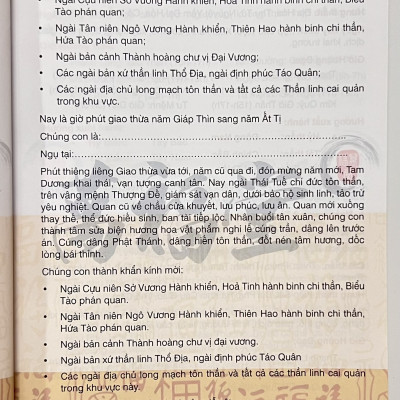 • Ngài Cựu niên Sở Vương Hành khiển, Hoả Tinh hành binh chi thần, Biểu
Tào phán quan;
• Ngài Tân niên Ngô Vương Hành khiển, Thiên Hao hành binh chi thần,
Hứa Tào phán quan;
• Ngài bản cảnh Thành hoàng chư vị Đại Vương;
• Các ngài bản xứ thần linh Thổ Địa, ngài định phúc Táo Quân;
• Các ngài địa chủ long mạch tôn thần và tất cả các Thần linh cai quản
trong khu vực.
Nay là giờ phút giao thừa năm Giáp Thìn sang năm Ất Tị
Chúng con là:
Ngụ tại:
Phút thiêng liêng Giao thừa vừa tới, năm cũ qua đi, đón mừng năm mới, Tam
Dương khai thái, vạn tượng canh tân. Nay ngài Thái Tuế chí đức tôn thần,
trên vâng mệnh Thượng Đế, giám sát vạn dân, dưới bảo hộ sinh linh, tảo trừ
yêu nghiệt. Quan cũ về chầu cửa khuyết, lưu phúc, lưu ân. Quan mới xuống
thay thế, thể đức hiếu sinh, ban tài tiếp lộc. Nhân buổi tân xuân, chúng con
thành tâm sửa biện hương hoa vật phẩm nghi lễ cúng trần, dâng lên trước
án. Cúng dâng Phật Thánh, dâng hiến tôn thần, đốt nén tâm hương, dốc
lòng bái thỉnh.
Chúng con thành khẩn kính mời:
• Ngài Cựu niên Sở Vương Hành khiển, Hoả Tinh hành binh chi thần, Biểu
Tào phán quan.
• Ngài Tân niên Ngô Vương Hành khiển, Thiên Hao hành binh chi thần,
Hứa Tào phán quan.
• Ngài bản cảnh Thành hoàng chư vị đại vương.
• Ngài bản xứ thần linh Thổ Địa, ngài định phúc Táo Quân
• Các ngài địa chủ long mạch tôn thần và tất cả các thần linh cai quản
trong khu vực này.